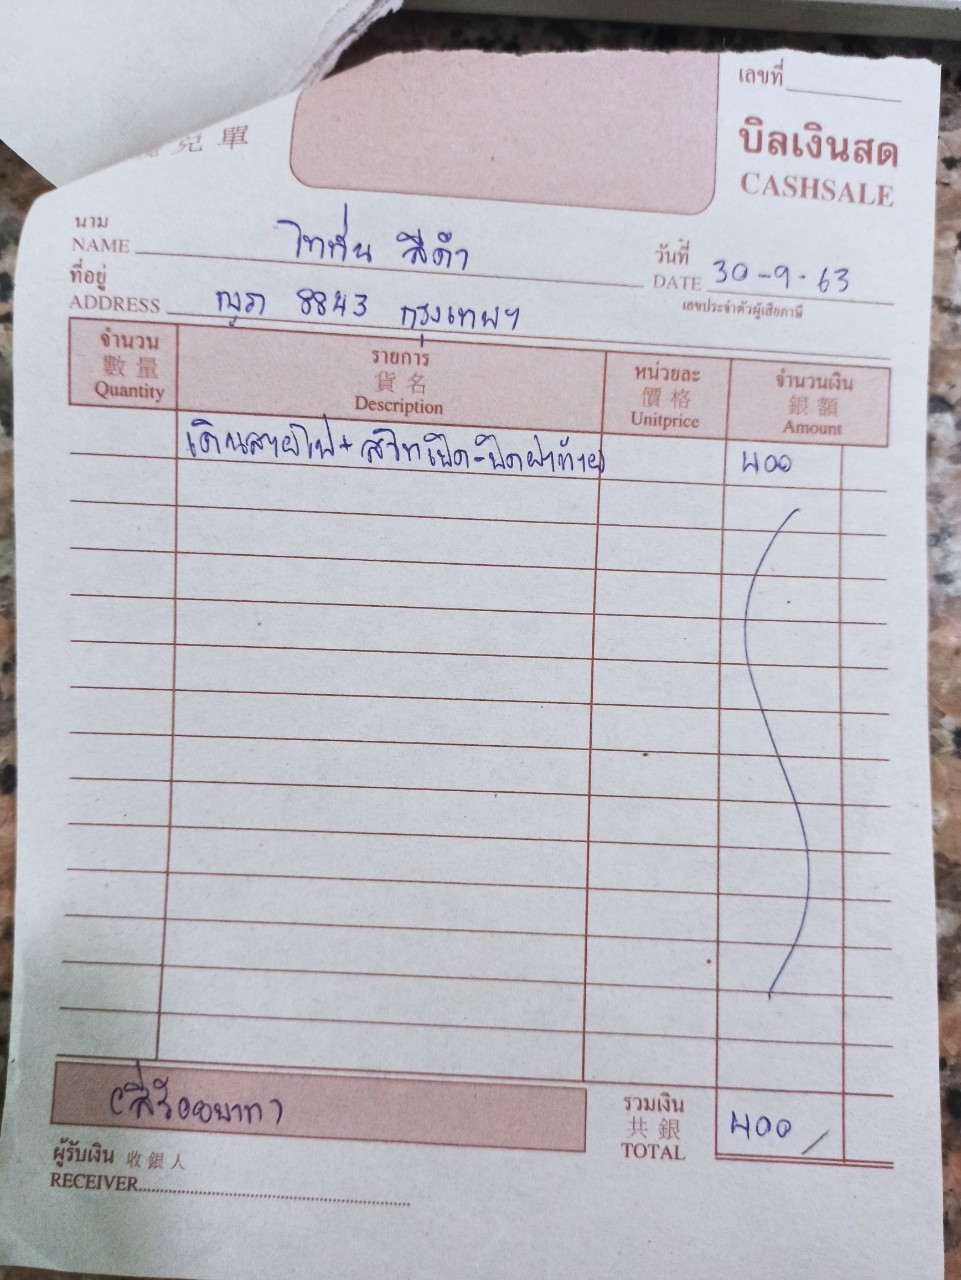 兌單
เลขที่
บิลเงินสด
CASHSALE
นาม
NAME ไททั่น สีดำ
วันที่
DATE 30-9-63
ที่อยู่
ADDRESS ญภก 8843 กรุงเทพฯ
เลขประจำตัวผู้เสียภาษี
จำนวน รายการ หน่วยละ จำนวนเงิน
數量 貨名 價格 銀額
Quantity Description Unitprice Amount
เดินสายไฟ+สวิทเปิด-ปิดฝาท้าย 400
(สี่ร้อยบาท)
รวมเงิน
共銀
TOTAL 400
ผู้รับเงิน 收銀人
RECEIVER